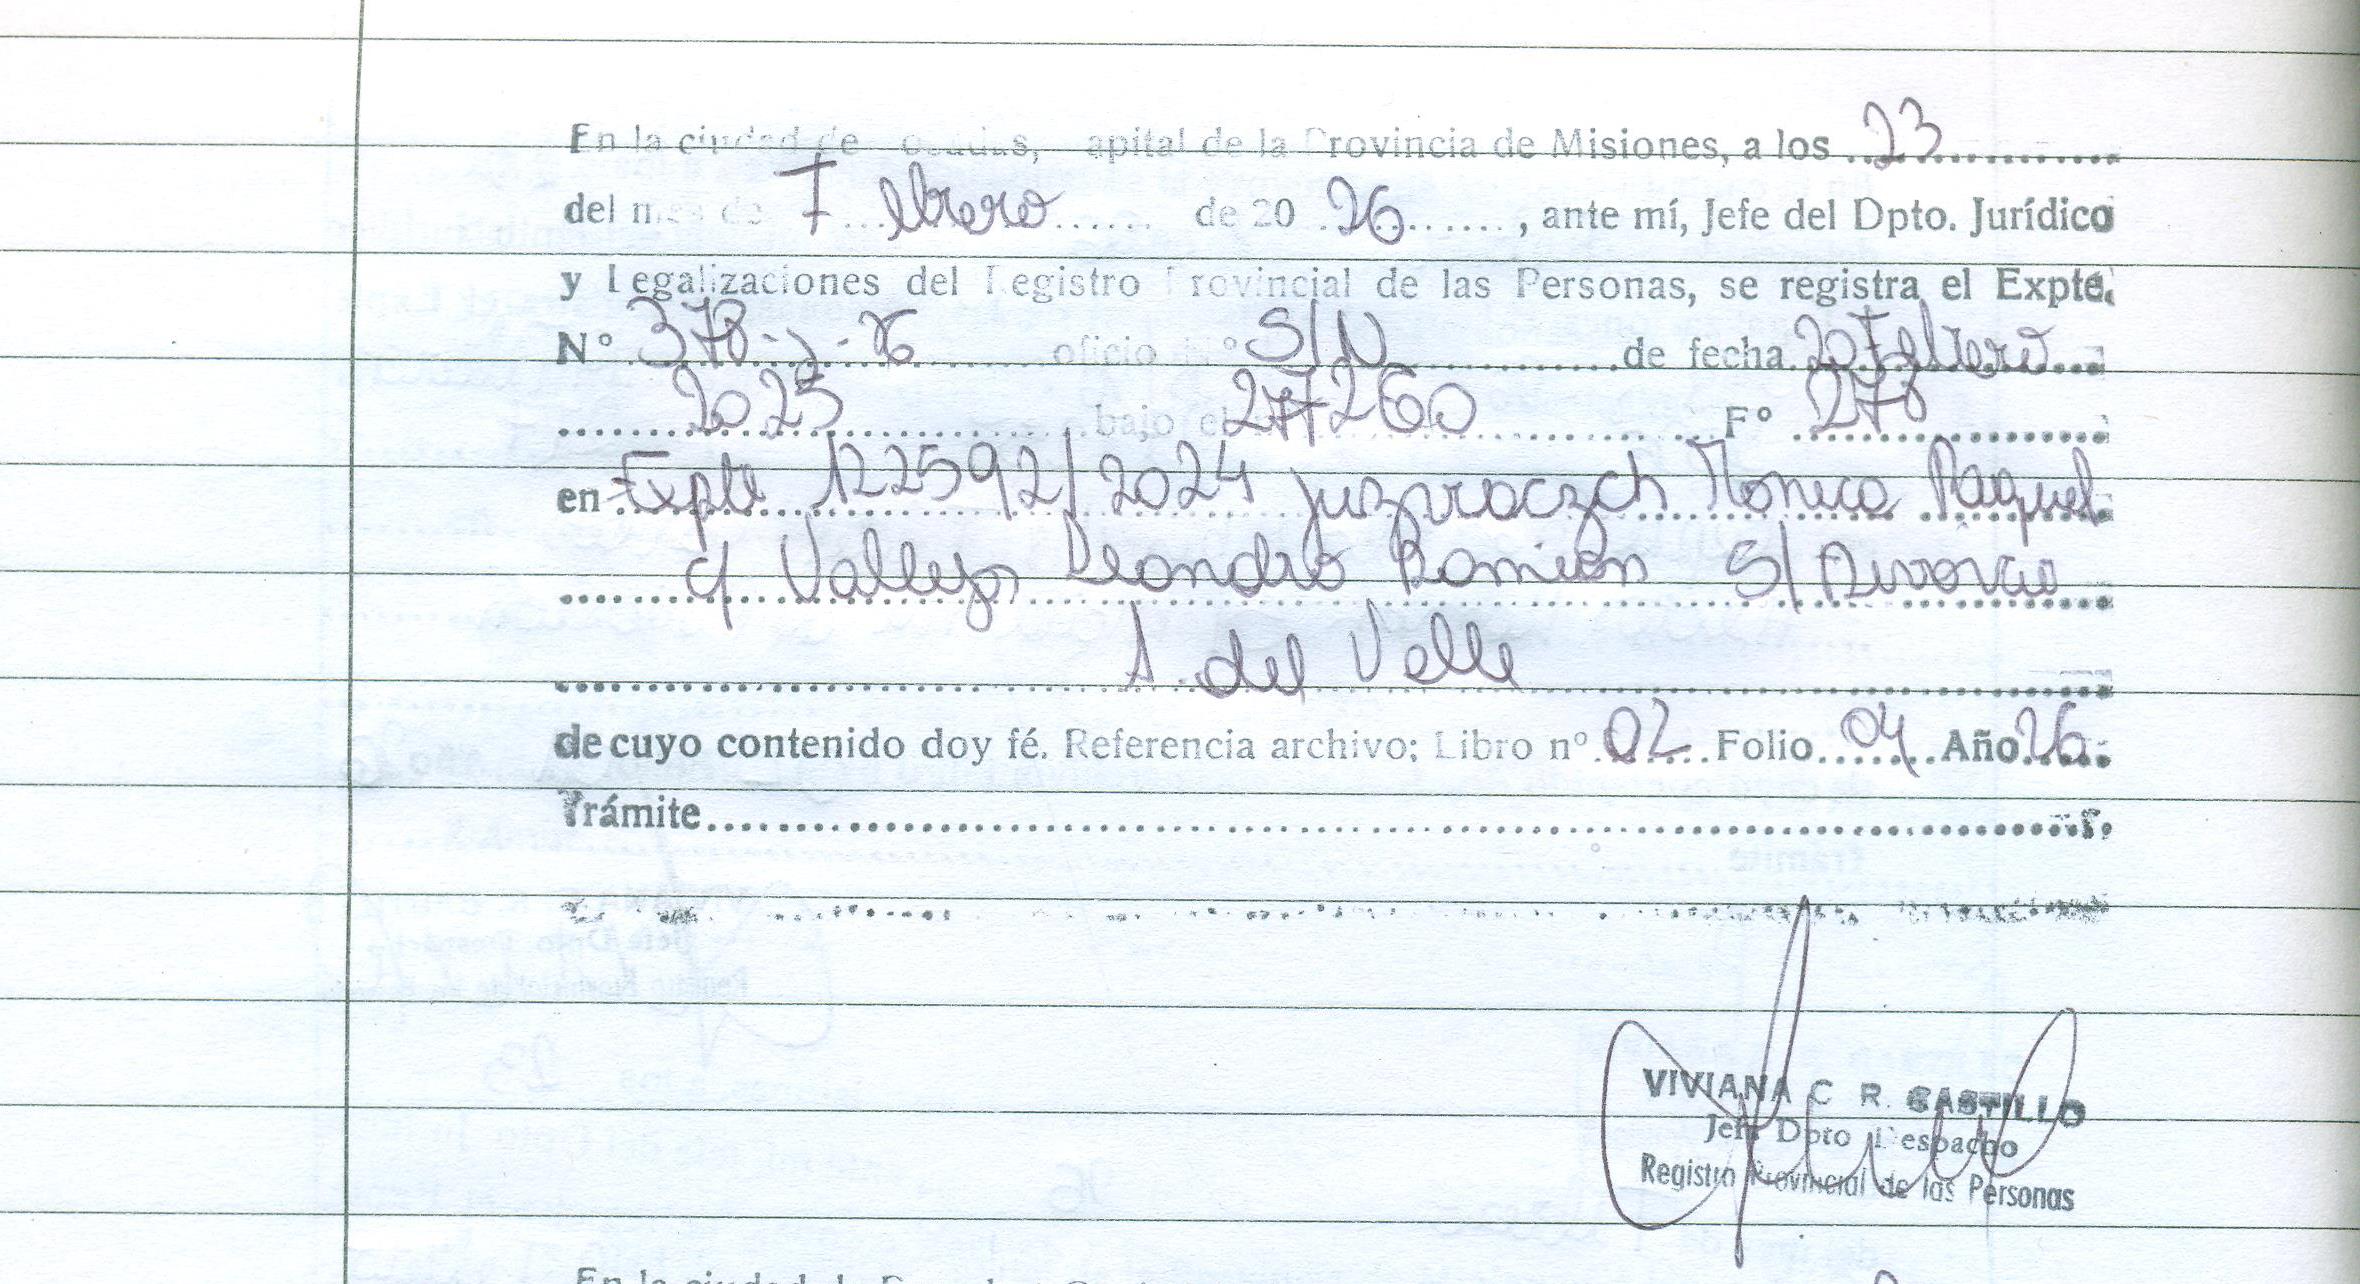 En la ciudad de Posadas, Capital de la Provincia de Misiones, a los 23
del mes de Febrero de 20 26, ante mí, Jefe del Dpto. Jurídico
y Legalizaciones del Registro Provincial de las Personas, se registra el Expte.
N° 378-J-26 oficio N° S/N de fecha 20 Febrero
2025 bajo el 277260 F° 278
en Expte 122592/2024 Mónica Raquel
c/ Vallejos Leandro Ramón S/ Divorcio
A. del Valle
de cuyo contenido doy fé. Referencia archivo; Libro n° 02 Folio 04 Año 26
Trámite
VIVIANA C R. CASTILLO
Jefe Dpto Despacho
Registro Provincial de las Personas
En la ciudad de